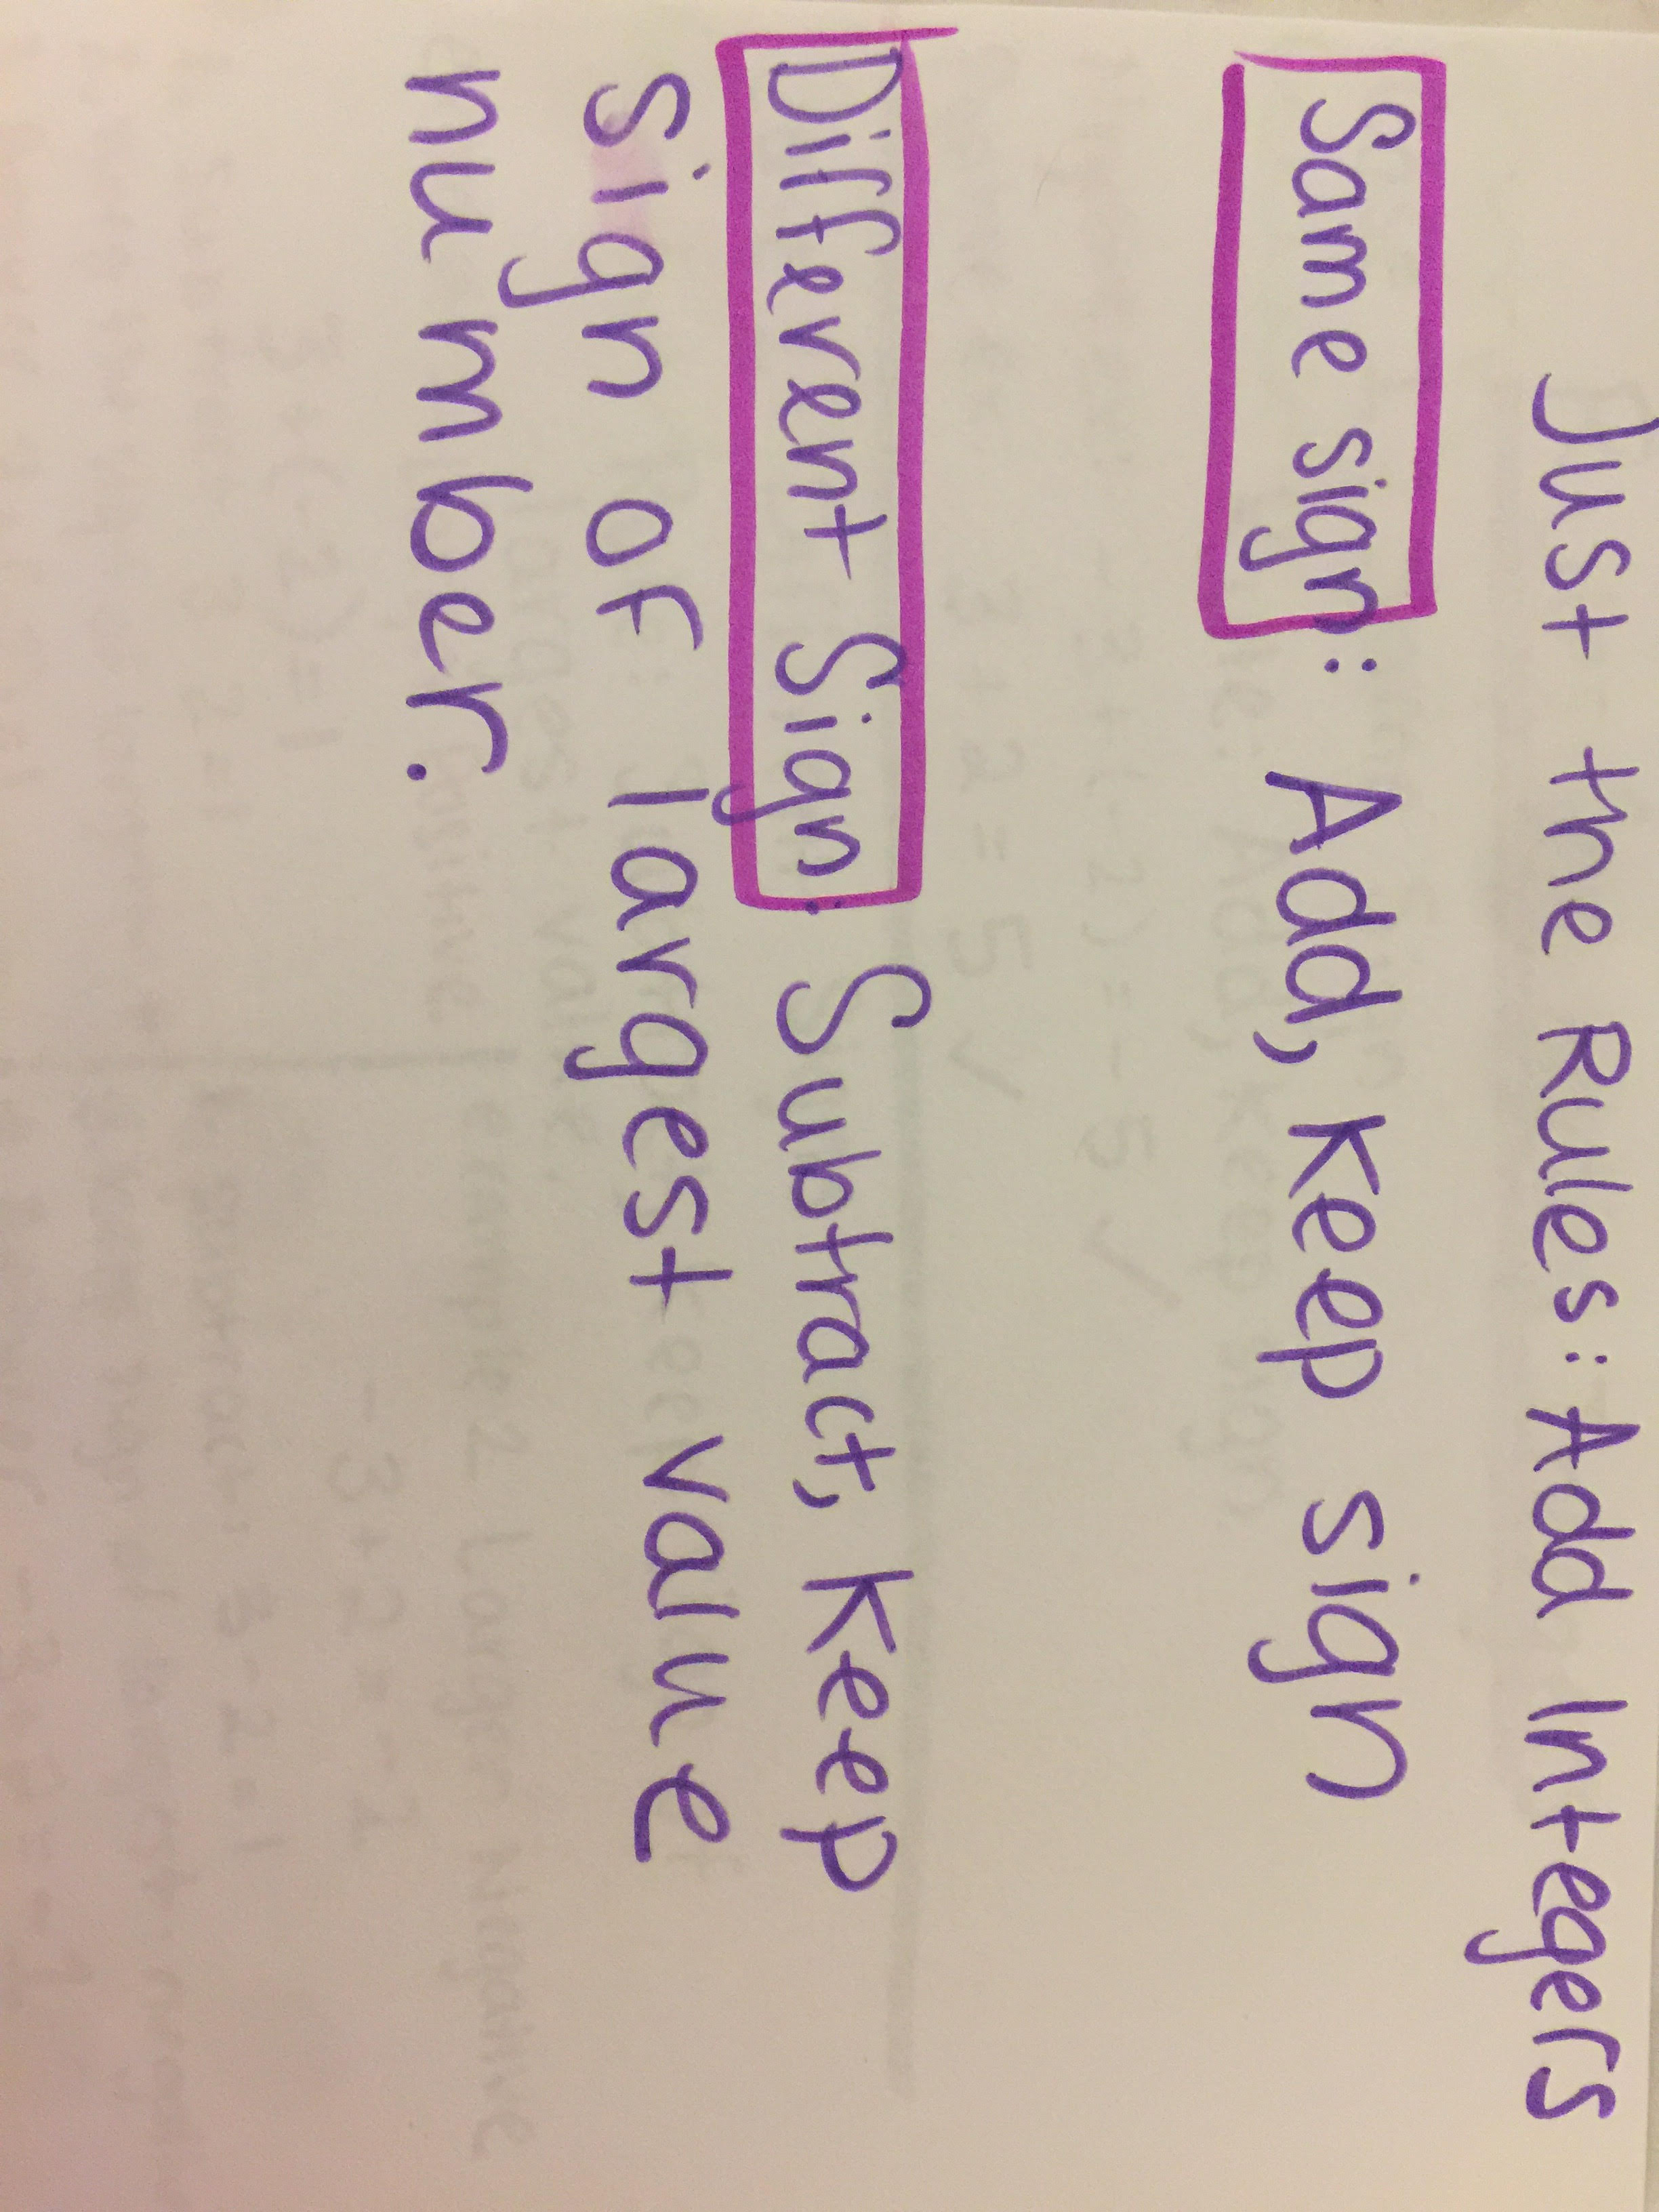 Just the Rules: Add Integers
Same sign: Add, Keep sign
Different Sign: Subtract, Keep
sign of largest value
number.